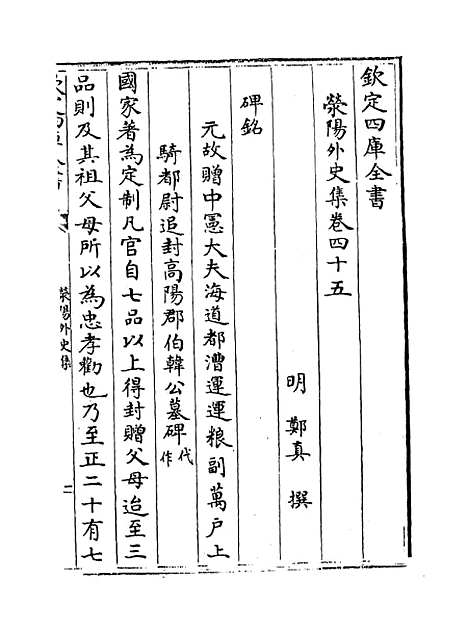 欽定四庫全書
滎陽外史集卷四十五
明 鄭真 撰
碑銘
元故贈中憲大夫海道都漕運運粮副萬户上
騎都尉追封高陽郡伯韓公墓碑代作
國家著為定制凡官自七品以上得封贈父母迨至三
品則及其祖父母所以為忠孝勸也乃至正二十有七
滎陽外史集